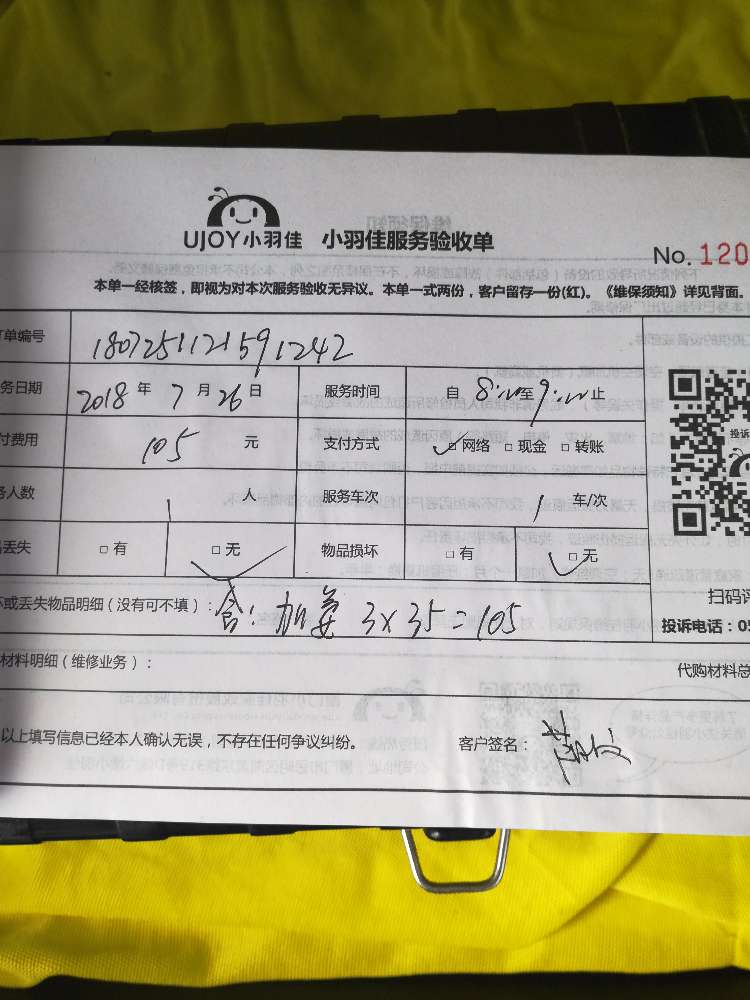 UJOY小羽佳 小羽佳服务验收单
No. 120
本单一经核签，即视为对本次服务验收无异议。本单一式两份，客户留存一份(红)。《维保须知》详见背面。
订单编号 1807251121591242
务日期 2018 年 7 月 26 日 服务时间 自 8:00 至 9:00 止
付费用 105 元 支付方式 ✓□ 网络 □ 现金 □ 转账
务人数 1 人 服务车次 1 车/次
投诉
丢失 □ 有 □ 无 物品损坏 □ 有 □ 无
扫码评
坏或丢失物品明细（没有可不填）： 3×35=105
投诉电话：05
材料明细（维修业务）： 代购材料总
以上填写信息已经本人确认无误，不存在任何争议纠纷。 客户签名：